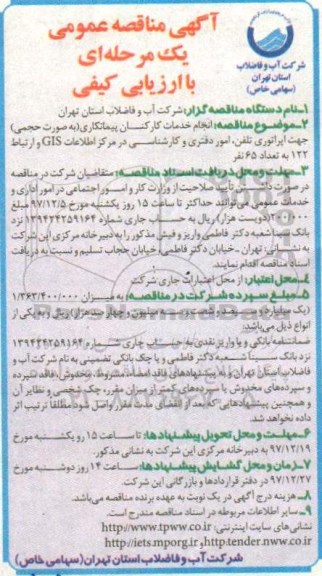 آگهی مناقصه عمومی
یک مرحله‌ای
با ارزیابی کیفی
شرکت آب و فاضلاب
استان تهران
(سهامی خاص)
۱-نام دستگاه مناقصه گزار: شرکت آب و فاضلاب استان تهران
۲-موضوع مناقصه: انجام خدمات کارکنان پیمانکاری(به صورت حجمی)
جهت اپراتوری تلفن، امور دفتری و کارشناسی در مرکز اطلاعات GIS و ارتباط
۱۲۲ به تعداد ۶۵ نفر
۳-مهلت و محل دریافت اسناد مناقصه: متقاضیان شرکت در مناقصه
در صورت داشتن تأیید صلاحیت از وزارت کار و امور اجتماعی در امور اداری و
خدمات عمومی می‌توانند حداکثر تا ساعت ۱۵ روز یکشنبه مورخ ۹۷/۱۲/۵ مبلغ
۲۰۰/۰۰۰ (دویست هزار) ریال به حساب جاری شماره
بانک سینا شعبه دکتر فاطمی واریز و فیش مذکور را به دبیرخانه مرکزی این شرکت
به نشانی: تهران - خیابان دکتر فاطمی، خیابان حجاب تسلیم و نسبت به دریافت
اسناد مناقصه اقدام نمایند.
۴-محل اعتبار: از محل اعتبارات جاری شرکت
۵-مبلغ سپرده شرکت در مناقصه: به میزان ۱/۳۶۳/۴۰۰/۰۰۰
(یک میلیارد و سیصد و شصت و سه میلیون و چهارصد هزار) ریال و به یکی از
انواع ذیل می‌باشد:
ضمانتنامه بانکی و یا واریز نقدی به حساب جاری شماره
نزد بانک سینا شعبه دکتر فاطمی و یا چک بانکی تضمینی به نام شرکت آب و
فاضلاب استان تهران و به پیشنهادهای فاقد امضاء، مشروط، مخدوش، فاقد سپرده
و سپرده‌های مخدوش یا سپرده‌های کمتر از میزان مقرر، چک شخصی و نظایر آن
و همچنین پیشنهادهایی که بعد از انقضای مدت مقرر واصل شود مطلقا ترتیب اثر
داده نخواهد شد.
۶-مهلت و محل تحویل پیشنهادها: تا ساعت ۱۵ روز یکشنبه مورخ
۹۷/۱۲/۱۹ به دبیرخانه مرکزی این شرکت به نشانی مذکور.
۷-زمان و محل گشایش پیشنهادها: ساعت ۱۴ روز دوشنبه مورخ
۹۷/۱۲/۲۷ در دفتر قراردادها و بازرگانی این شرکت.
۸-هزینه درج آگهی در یک نوبت به عهده برنده مناقصه می‌باشد.
۹-سایر اطلاعات مربوطه در اسناد مناقصه مندرج است.
نشانی‌های سایت اینترنتی: http//www.tpww.co.ir
http//iets.mporg.ir و http:tender.nww.co.ir
شرکت آب و فاضلاب استان تهران(سهامی خاص)